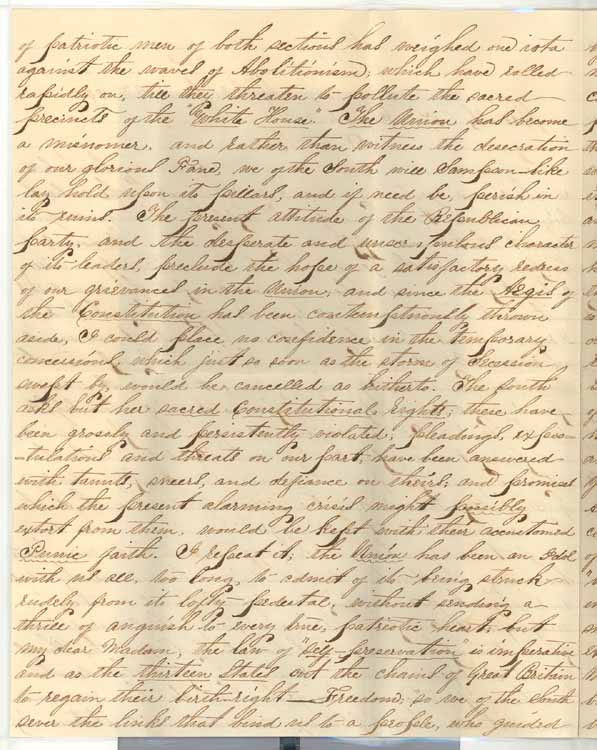 of patriotic men of both sections has weighed one iota
against the waves of Abolitionism, which have rolled
rapidly on, till they threaten to pollute the sacred
precincts of the "White House." The Union has become
a misnomer, and rather than witness the desecration
of our glorious Fane, we of the South will Sampson-like
lay hold upon its pillars, and if need be, perish in
its ruins. The present attitude of the Republican
party, and the desperate and unscrupulous character
of its leaders, preclude the hope of a satisfactory redress
of our grievances in the Union; and since the Aegis of
the Constitution has been contemptuously thrown
aside, I could place no confidence in the temporary
concessions, which just so soon as the storm of Secession
swept by, would be cancelled as hitherto. The South
asks but her sacred Constitutional Rights; these have
been grossly and persistently violated; pleadings, expos-
-tulations and threats on our part, have been answered
with taunts, sneers, and defiance on theirs, and promises
which the present alarming crisis might possibly
extort from them, would be kept with their accustomed
Punic faith. I repeat it, the Union has been an Idol
with us all, too long, to admit of its being struck
rudely from its lofty pedestal, without sending a
thrill of anguish to every true, patriotic heart; but
my dear Madam, the law of "Self-preservation is imperative
and as the thirteen States cut the chains of Great Britain
to regain their birth-right — Freedom; so we of the South
sever the links that bind us to a people, who guided